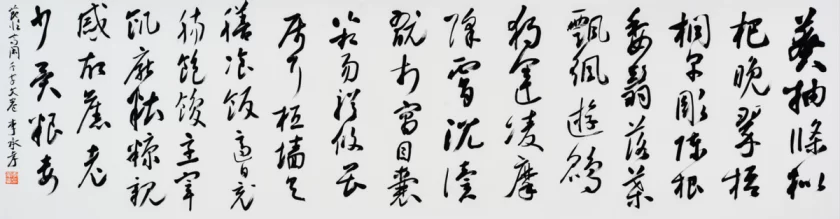 莽抽條枇
杷晚翠梧
桐早彫陳根
委翳落葉
飄颻遊鵾
獨運凌摩
絳霄耽讀
翫市寓目囊
箱易輶攸畏
屬耳垣墻具
膳飡飯適口充
腸飽飫烹宰
飢厭糟糠親
戚故舊老
少異糧妾
高閑千字文卷 李永